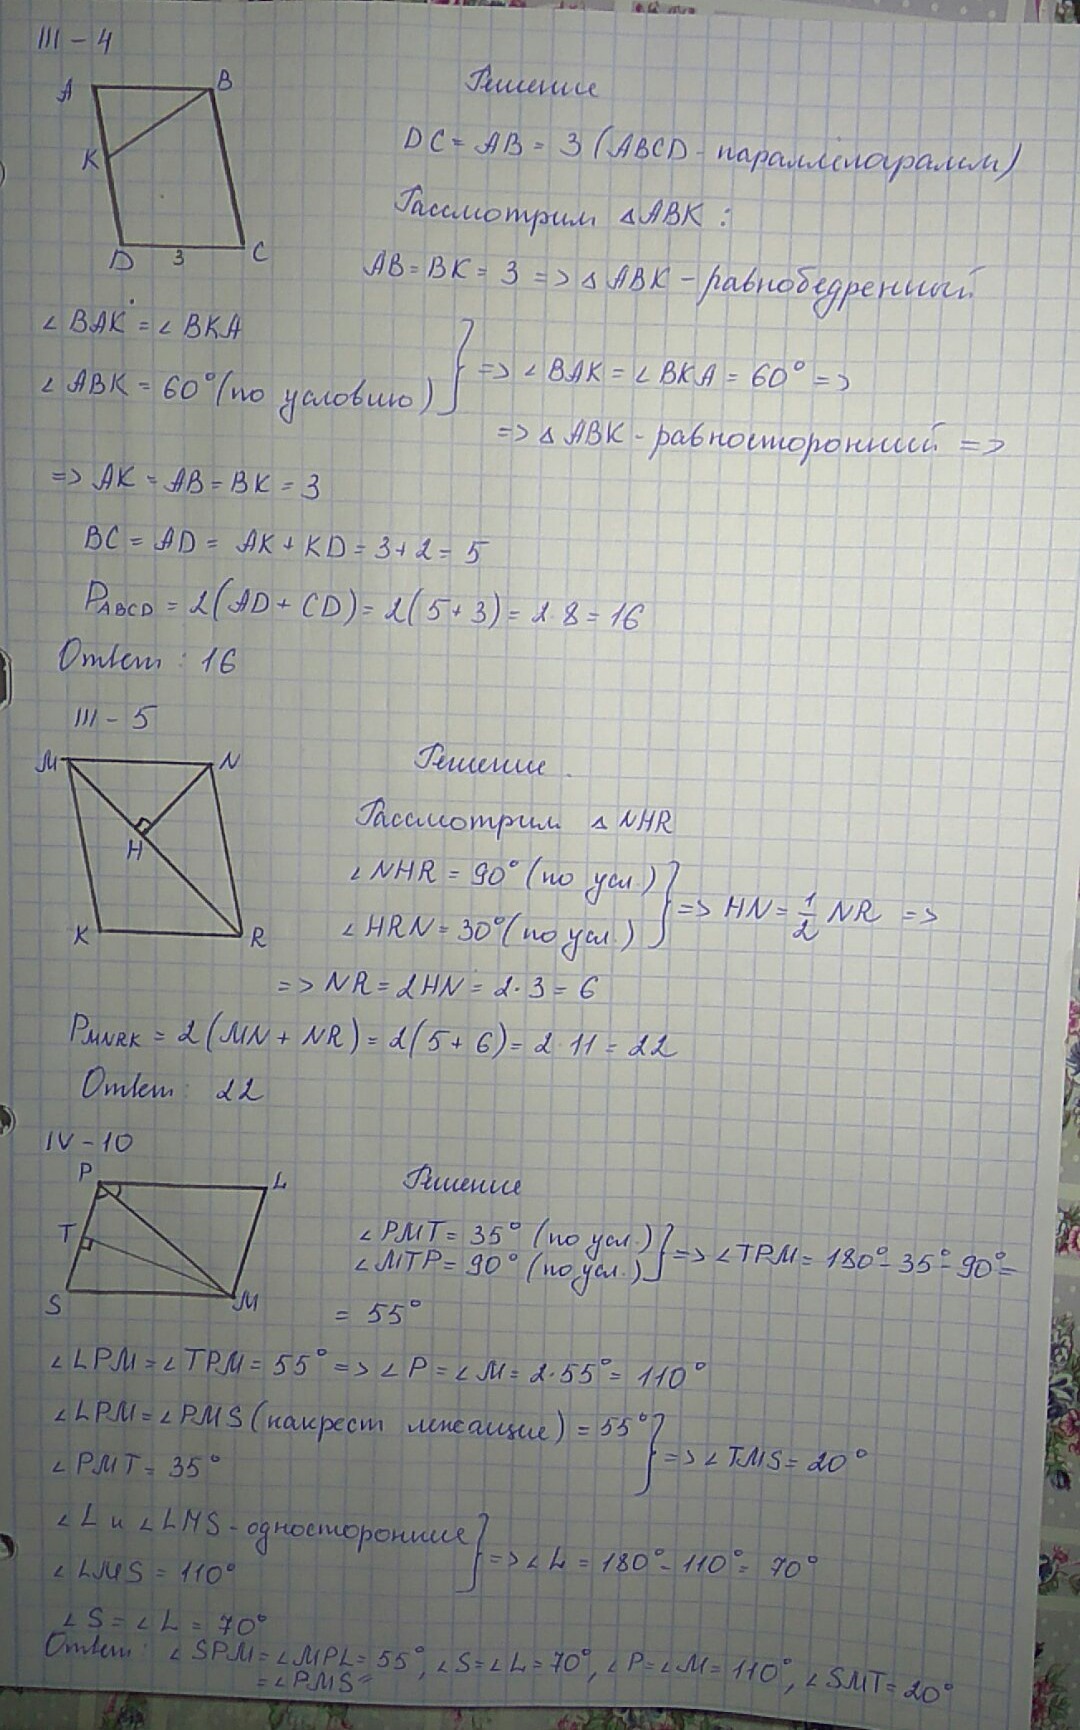 III - 4
A B
K
D 3 C
Решение
DC = AB = 3 (ABCD - параллелограмм)
Рассмотрим △ABK :
AB = BK = 3 => △ABK - равнобедренный
∠BAK = ∠BKA
∠ABK = 60° (по условию)
=> ∠BAK = ∠BKA = 60° =>
=> △ABK - равносторонний =>
=> AK = AB = BK = 3
BC = AD = AK + KD = 3 + 2 = 5
PABCD = 2(AD + CD) = 2(5 + 3) = 2·8 = 16
Ответ : 16
III - 5
M N
H
K R
Решение
Рассмотрим △NHR
∠NHR = 90° (по усл.)
∠HRN = 30° (по усл.)
=> HN = 1/2 NR =>
=> NR = 2HN = 2·3 = 6
PMNRK = 2(MN + NR) = 2(5 + 6) = 2·11 = 22
Ответ: 22
IV - 10
P L
T
S M
Решение
∠PMT = 35° (по усл.)
∠MTP = 90° (по усл.)
=> ∠TPM = 180° - 35° - 90° =
= 55°
∠LPM = ∠TPM = 55° => ∠P = ∠M = 2·55° = 110°
∠LPM = ∠PMS (накрест лежащие) = 55°
∠PMT = 35°
=> ∠TMS = 20°
∠L и ∠LMS - односторонние
∠LMS = 110°
=> ∠L = 180° - 110° = 70°
∠S = ∠L = 70°
Ответ: ∠SPM = ∠MPL = 55°, ∠S = ∠L = 70°, ∠P = ∠M = 110°, ∠SMT = 20°
= ∠PMS =